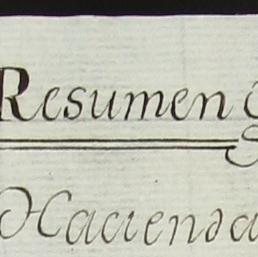 Resumen
Hacienda